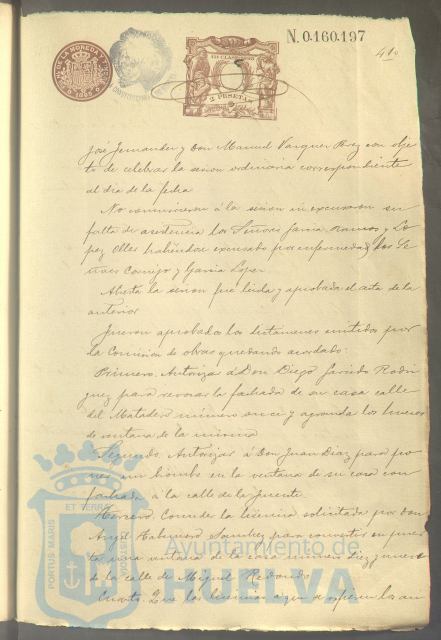 N.0.160.197
2 PESETAS
José Fernandez y Don Manuel Vazquez Perez con obje
to de celebrar la sesion ordinaria correspondiente
al dia de la fecha
No concurrieron á la sesion ni excusaron su
falta de asistencia los Señores Garcia Ramos y Lo
pez Olles habiendose excusado por enfermedad los Se
ñores Cornejo y Garcia Lopez
Abierta la sesion fue leida y aprobada el acta de la
anterior
Fueron aprobados los dictamenes emitidos por
la Comision de obras quedando acordado:
Primero. Autorizar á Don Diego Garrido Rodri
guez para revocar la fachada de su casa calle
del Matadero número once y agrandar los huecos
de ventana de la misma
Segundo Autorizar á Don Juan Diaz para po
ner un en la ventana de su casa con
fachada á la calle de la Fuente
Tercero. Conceder la licencia solicitada por Don
Angel Sanchez para convertir en puer
ta una ventana de la casa número diez y nueve
de la calle de Miguel Redondo
Cuarto Que las licencias á que se refieren los an
PORTUS MARIS
ET TERRAE
CUSTODIA
Ayuntamiento de
HUELVA